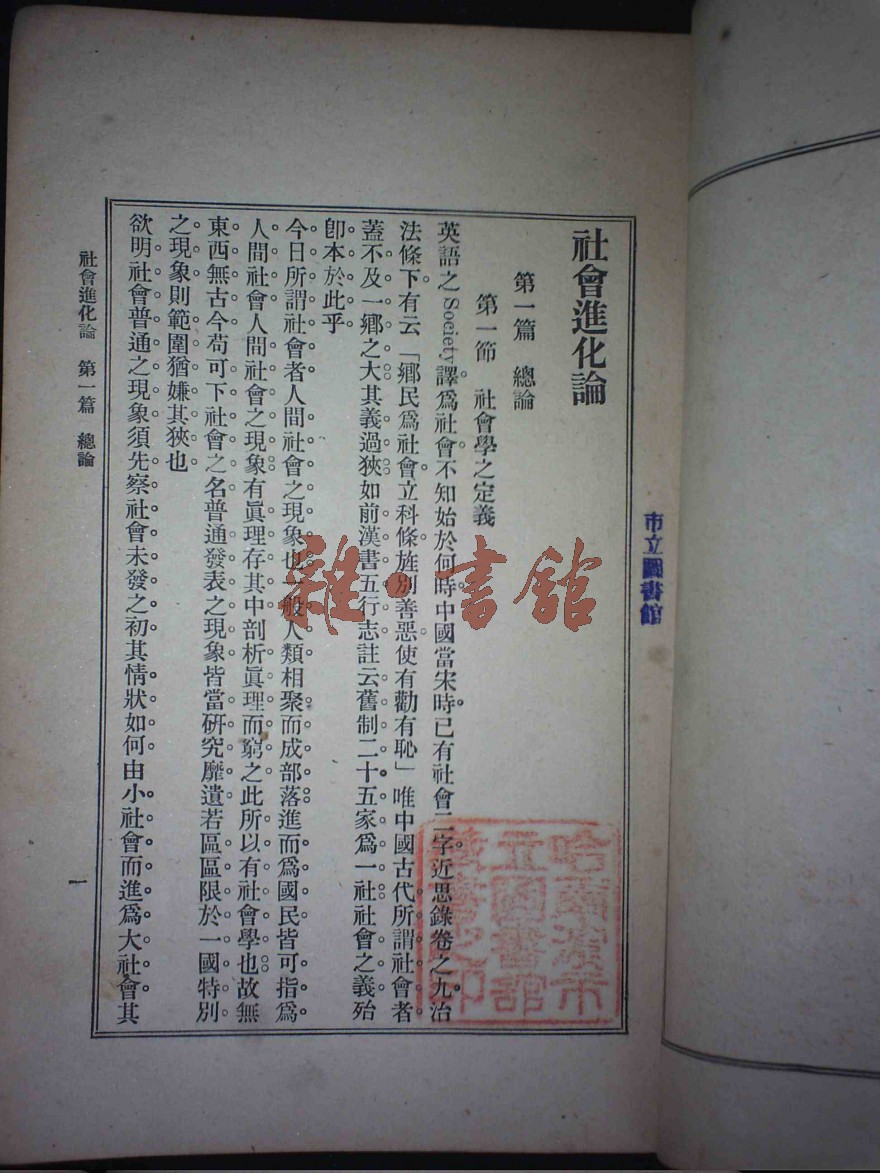 社會進化論
第一篇 總論
第一節 社會學之定義
英語之Society譯爲社會不知始於何時中國當宋時已有社會二字近思錄卷之九治
法條下有云「鄉民爲社會立科條旌別善惡使有勸有恥」唯中國古代所謂社會者
蓋不及一鄉之大其義過狹如前漢書五行志註云舊制二十五家爲一社社會之義殆
卽本於此乎
今日所謂社會者人間社會之現象也一般人類相聚而成部落進而爲國民皆可指爲
人間社會人間社會之現象有眞理存其中剖析眞理而窮之此所以有社會學也故無
東西無古今苟可下社會之名普通發表之現象皆當研究靡遺若區區限於一國特別
之現象則範圍猶嫌其狹也
欲明社會普通之現象須先察社會未發之初其情狀如何由小社會而進爲大社會其
社會進化論 第一篇 總論
一
市立圖書館
哈爾濱市
立圖書館
藏書之印
雜·書館